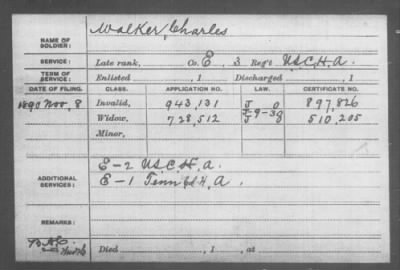 NAME OF SOLDIER: Walker, Charles
SERVICE: Late rank, Co. E, 3 Reg't U.S.C.H.A.
TERM OF SERVICE: Enlisted , 1 Discharged , 1
DATE OF FILING. CLASS. APPLICATION NO. LAW. CERTIFICATE NO.
1890 Nov, 8 Invalid, 943,131 J O 897,826
Widow, 728,512 J 510,205
Minor,
ADDITIONAL SERVICES: E-2 U.S.C.H.A.
E-1 Tenn Cld H.A.
REMARKS:
Died , 1 , at